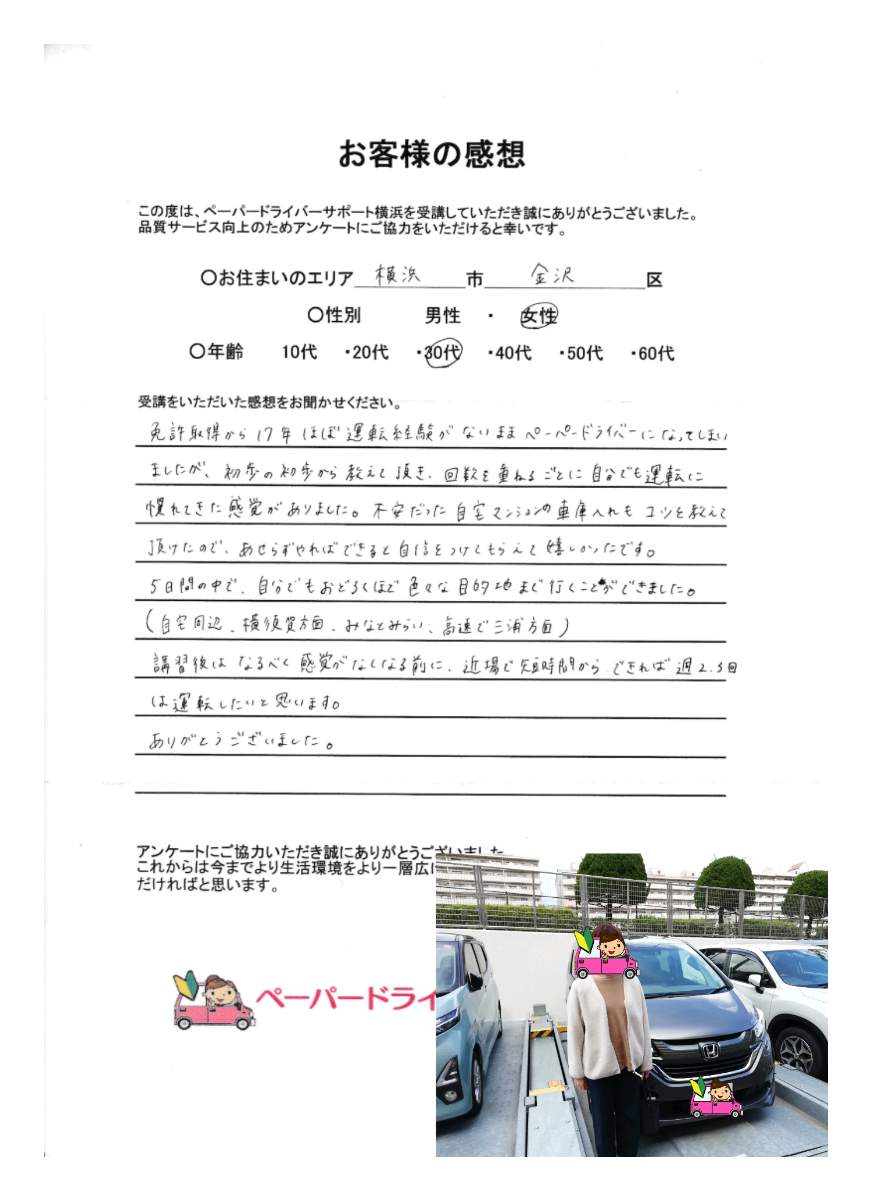 お客様の感想
この度は、ペーパードライバーサポート横浜を受講していただき誠にありがとうございました。
品質サービス向上のためアンケートにご協力をいただけると幸いです。
○お住まいのエリア 横浜 市 金沢 区
○性別 男性 ・ 女性
○年齢 10代 ・20代 ・30代 ・40代 ・50代 ・60代
受講をいただいた感想をお聞かせください。
免許取得から17年ほぼ運転経験がないままペーパードライバーになってしまい
ましたが、初歩の初歩から教えて頂き、回数を重ねるごとに自分でも運転に
慣れてきた感覚がありました。不安だった自宅マンションの車庫入れもコツを教えて
頂けたので、あせらずやればできると自信をつけてもらえて嬉しかったです。
5日間の中で、自分でもおどろくほど色々な目的地まで行くことができました。
(自宅周辺、横須賀方面、みなとみらい、高速で三浦方面)
講習後はなるべく感覚がなくなる前に、近場で短時間から、できれば週2.3回
は運転したいと思います。
ありがとうございました。
アンケートにご協力いただき誠にありがとうございました
これからは今までより生活環境をより一層広に
だければと思います。
ペーパードライ